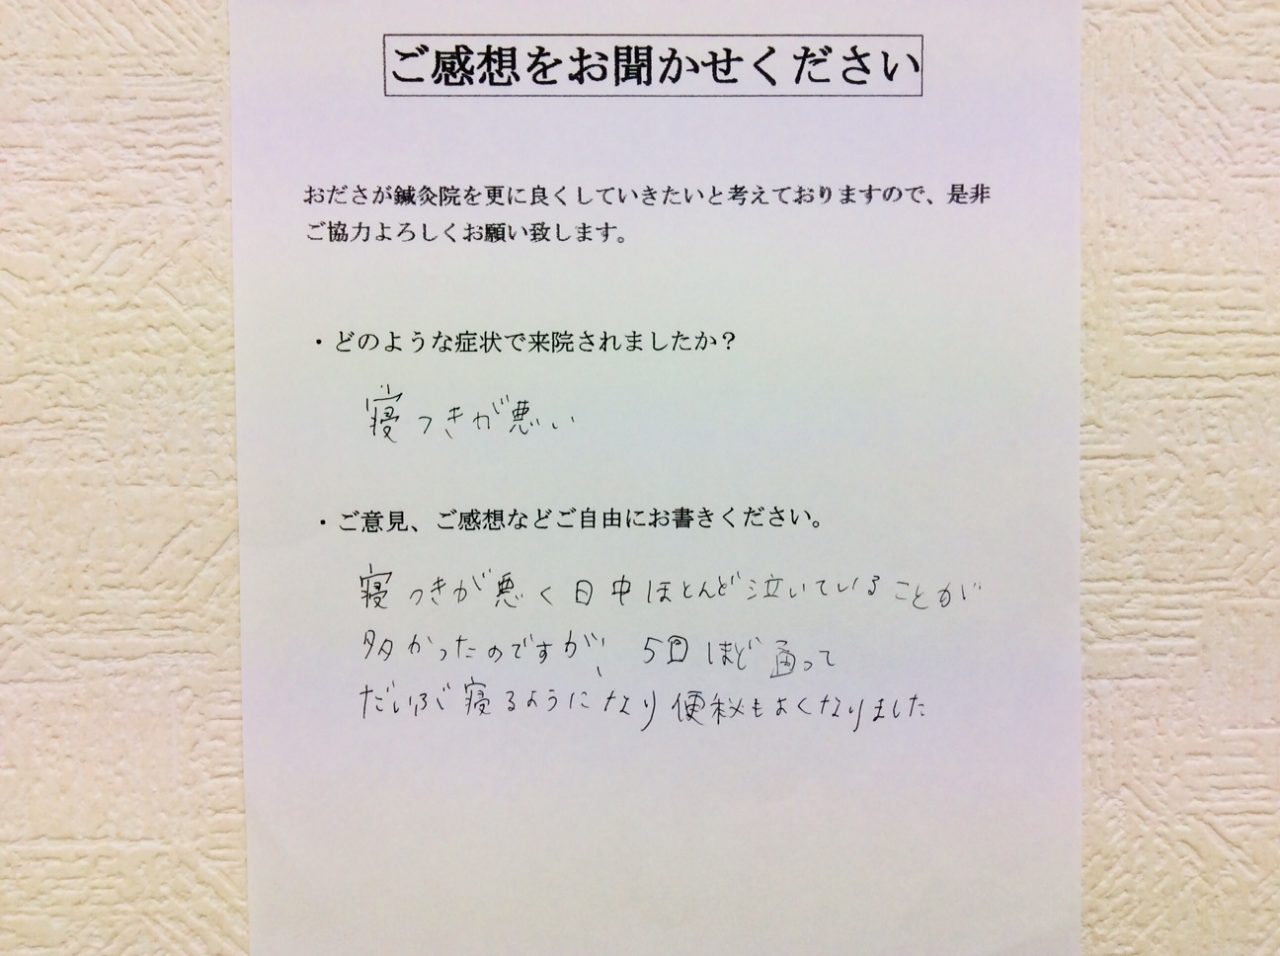 ご感想をお聞かせください
おださが鍼灸院を更に良くしていきたいと考えておりますので、是非
ご協力よろしくお願い致します。
・どのような症状で来院されましたか？
寝つきが悪い
・ご意見、ご感想などご自由にお書きください。
寝つきが悪く日中ほとんど泣いていることが
多かったのですが、5回ほど通って
だいぶ寝るようになり便秘もよくなりました